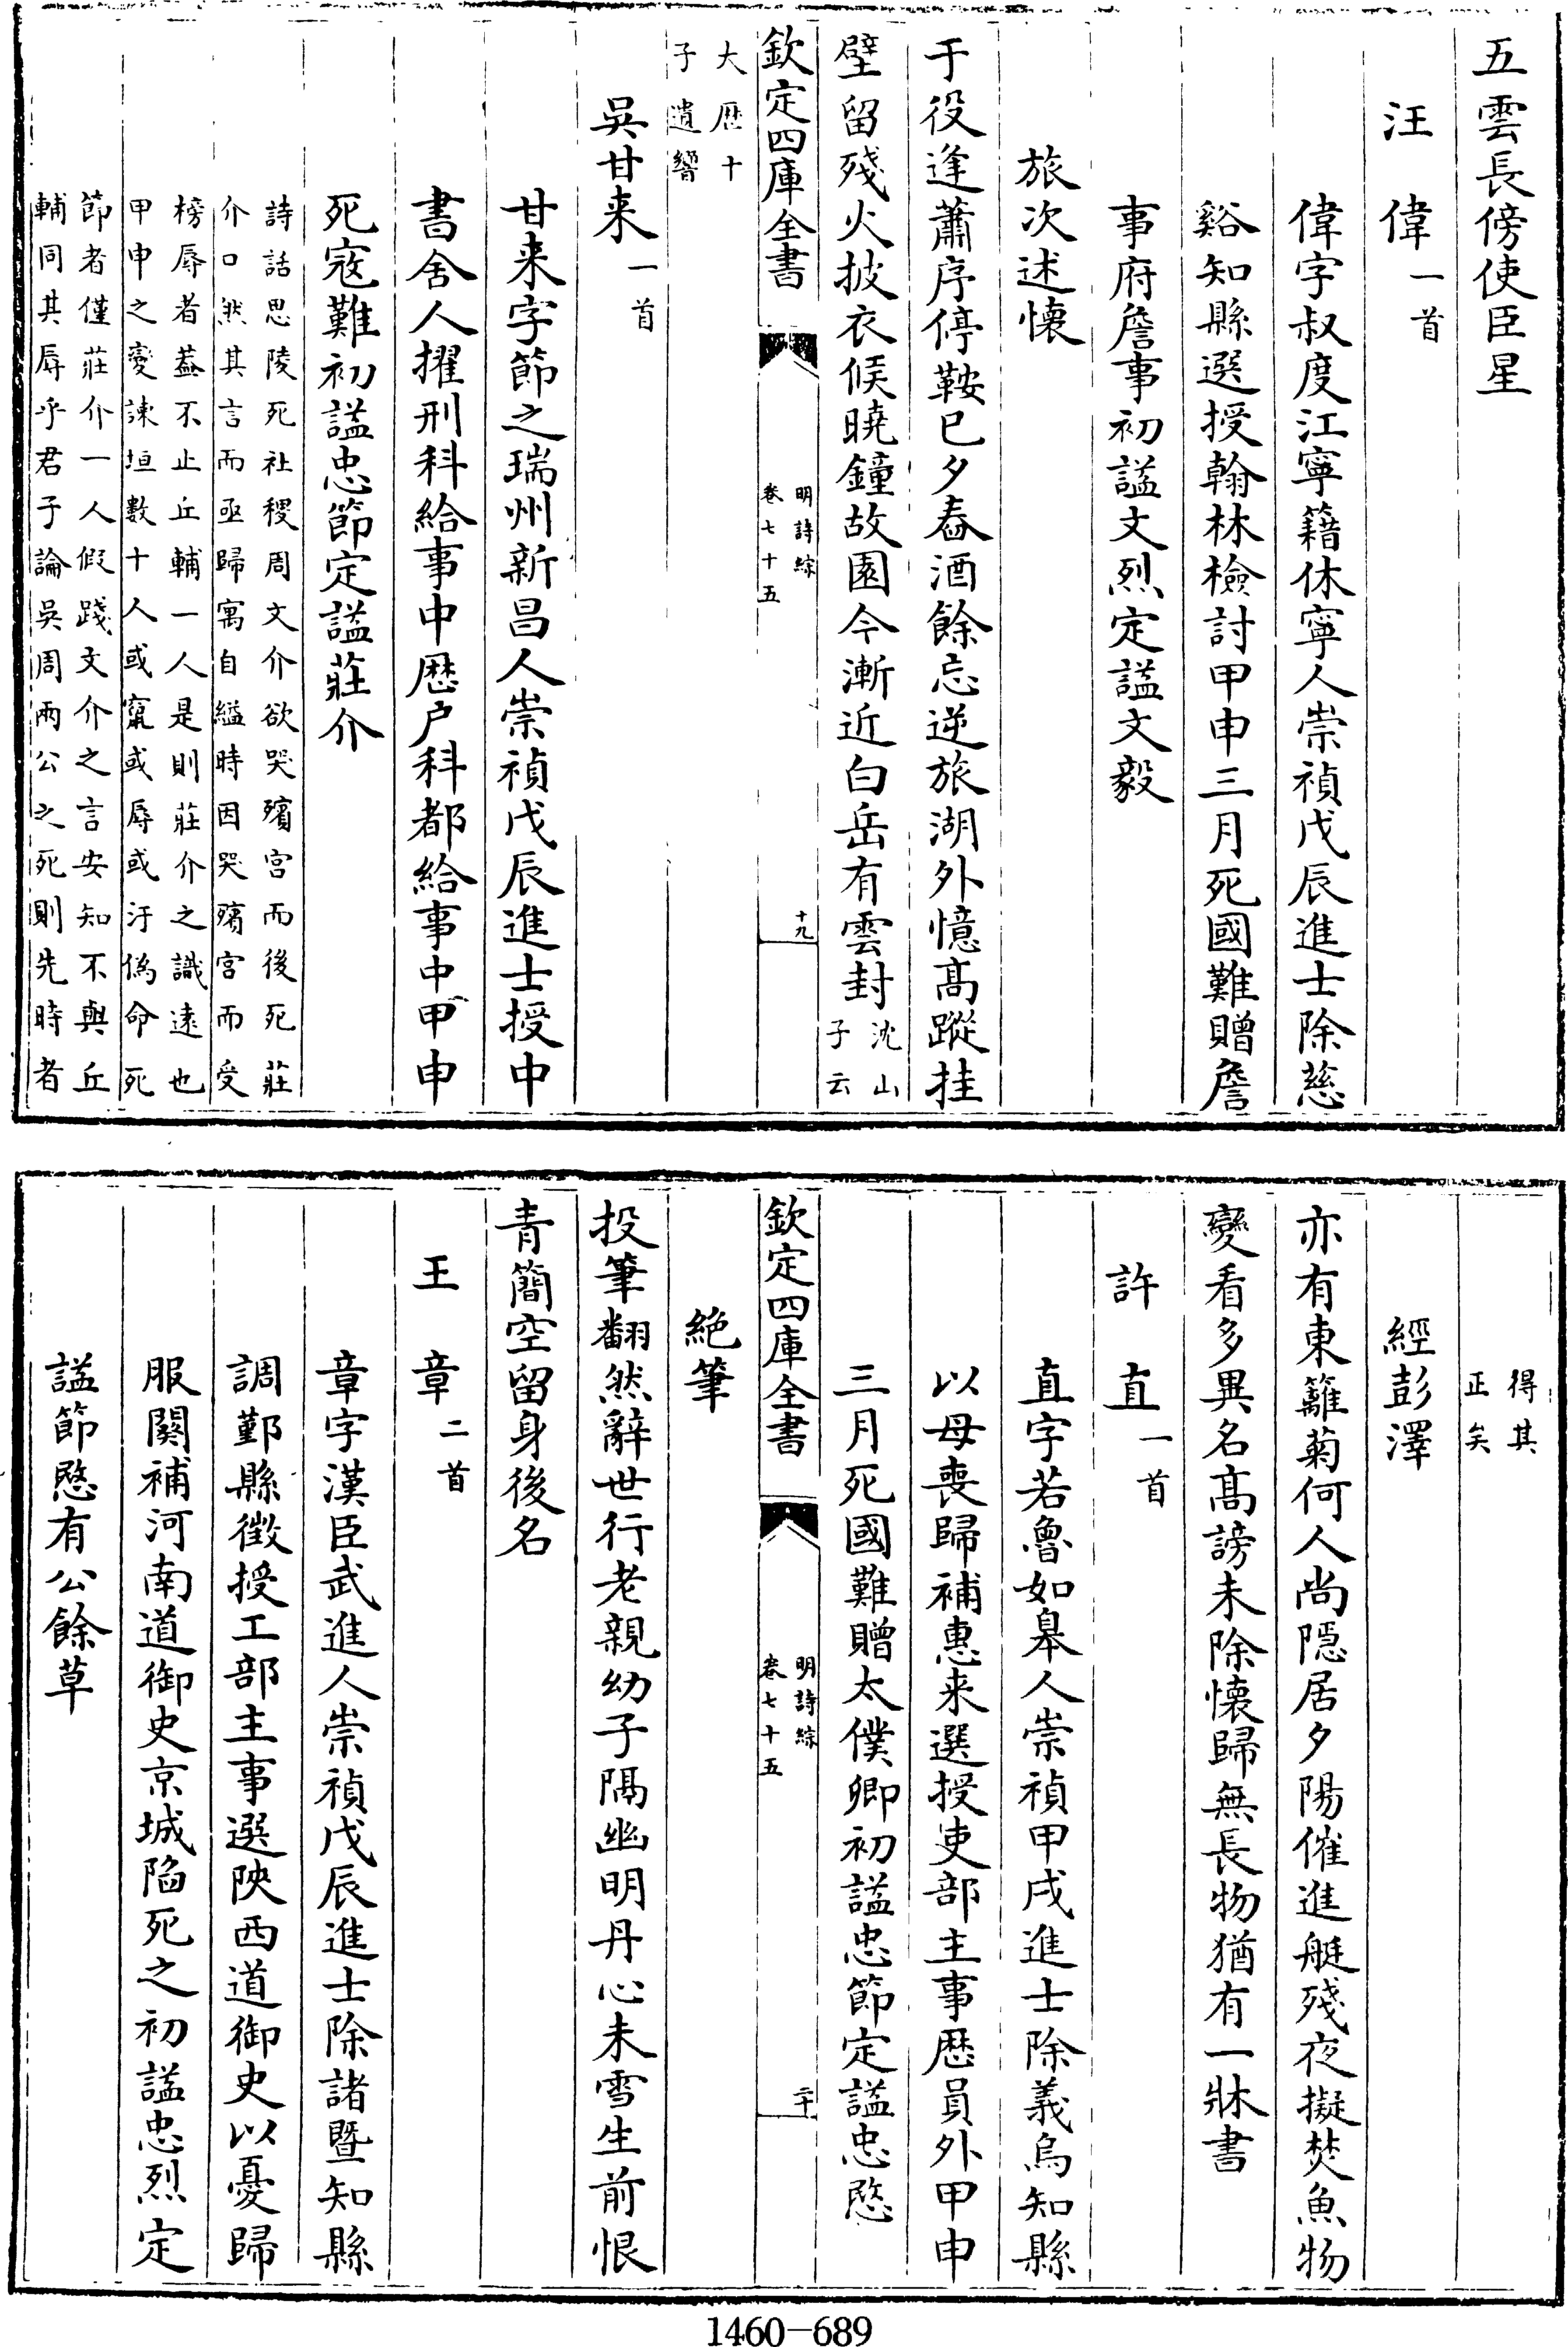 五雲長傍使臣星
汪　偉一首
偉字叔度江寧籍休寧人崇禎戊辰進士除慈
谿知縣選授翰林檢討甲申三月死國難贈詹
事府詹事初謚文烈定謚文毅
旅次述懷
于役逢蕭序停鞍已夕舂酒餘忘逆旅湖外憶髙蹤挂
壁留殘火披衣候曉鐘故園今漸近白岳有雲封沈山子云
欽定四庫全書
明詩綜
卷七十五
十九
大厯十
子遺響
吳甘来一首
甘来字節之瑞州新昌人崇禎戊辰進士授中
書舍人擢刑科給事中厯户科都給事中甲申
死寇難初謚忠節定謚莊介
詩話思陵死社稷周文介欲哭殯宮而後死莊
介口然其言而亟歸寓自縊時因哭殯宮而受
榜辱者葢不止丘輔一人是則莊介之識逺也
甲申之變諫垣數十人或竄或辱或汙偽命死
節者僅莊介一人假踐文介之言安知不與丘
輔同其辱乎君子論吳周兩公之死則先時者
得其
正矣
經彭澤
亦有東籬菊何人尚隠居夕陽催進艇殘夜擬焚魚物
變看多異名髙謗未除懷歸無長物猶有一牀書
許　直一首
直字若魯如臯人崇禎甲戌進士除義烏知縣
以母喪歸補惠来選授吏部主事厯員外甲申
三月死國難贈太僕卿初謚忠節定謚忠愍
欽定四庫全書
明詩綜
卷七十五
二十
絶筆
投筆翻然辭世行老親幼子隔幽明丹心未雪生前恨
青簡空留身後名
王　章二首
章字漢臣武進人崇禎戊辰進士除諸暨知縣
調鄞縣徵授工部主事選陜西道御史以憂歸
服闋補河南道御史京城陷死之初謚忠烈定
謚節愍有公餘草
1460—689